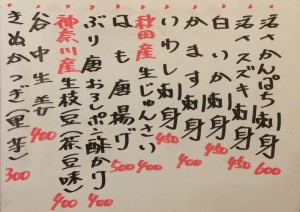 活〆かんぱち刺身 600
活〆スズキ刺身 450
白いか刺身 450
かます刺身 400
いわし刺身 450
秋田産生じゅんさい 400
はも唐揚げ 500
ぶり唐おろしポン酢かけ 400
神奈川産生枝豆(茶豆味) 400
谷中生姜 400
きぬかつぎ(里芋) 300